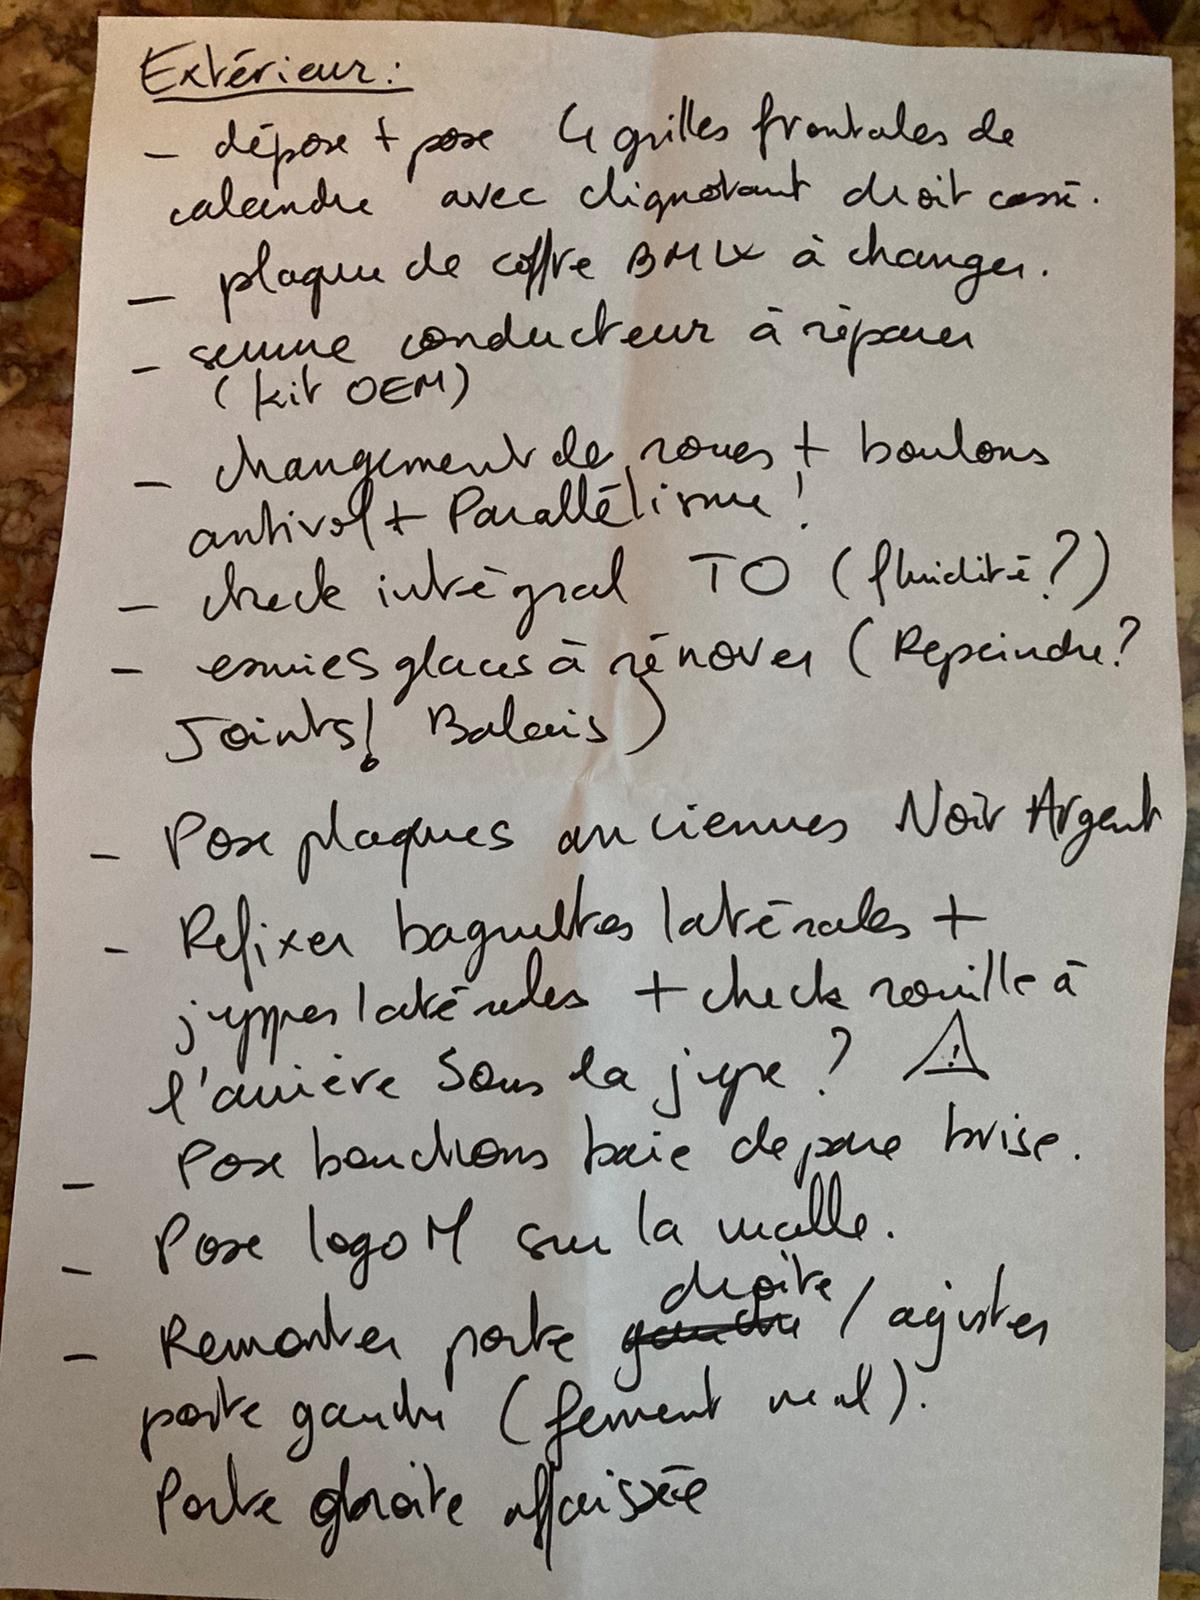 Extérieur :
- dépose + pose 4 grilles frontales de
calandre avec clignotant droit cassé.
- plaque de coffre BMW à changer.
- serrure conducteur à réparer
(kit OEM)
- changement de roues + boulons
antivol + Parallélisme !
- check intégral TO (fluidité ?)
- essuies glaces à rénover (Repeindre ?
Joints ! Balais)
- Pose plaques anciennes Noir Argent
- Refixer baguettes latérales +
juppes latérales + check rouille à
l'arrière sous la jupe ? ⚠
- Pose bouchons baie de pare brise.
- Pose logo M sur la malle.
- Remonter porte gauche droite / ajuster
porte gauche (ferment mal).
Porte droite affaissée